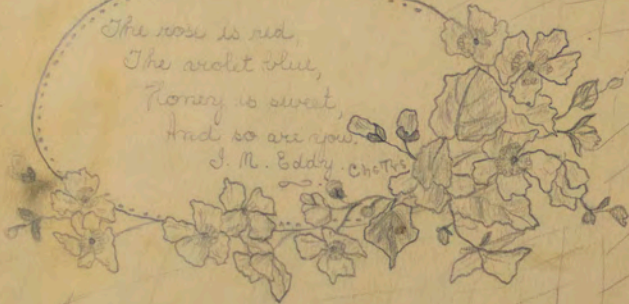 The rose is red,
The violet blue,
Honey is sweet,
And so are you.
I. M. Eddy.